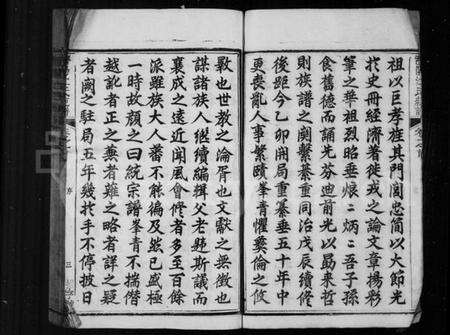 祖以巨孝旌其門閭忠简以大節光
於史冊經濟著徙戎之論文章揚彩
筆之華祖烈昭垂烺〻炳〻吾子孫
食舊德而誦先芬迪前光以勗來哲
則族譜之闕纂重同治戊辰續修
後距今乙卯開局重纂垂五十年中
更喪亂人事繁賾峯青懼彝倫之攸
斁也世教之淪胥也文獻之無徵也
謀諸族人継續編輯父老韙斯議而
襄成之遠近聞風會修者多至百餘
派雖族大人蕃不能徧及然已盛極
一時故顏之曰統宗譜峯青不揣僭
越訛者正之蕪者薙之略者詳之疑
者闕之駐局五年幾於手不停披日